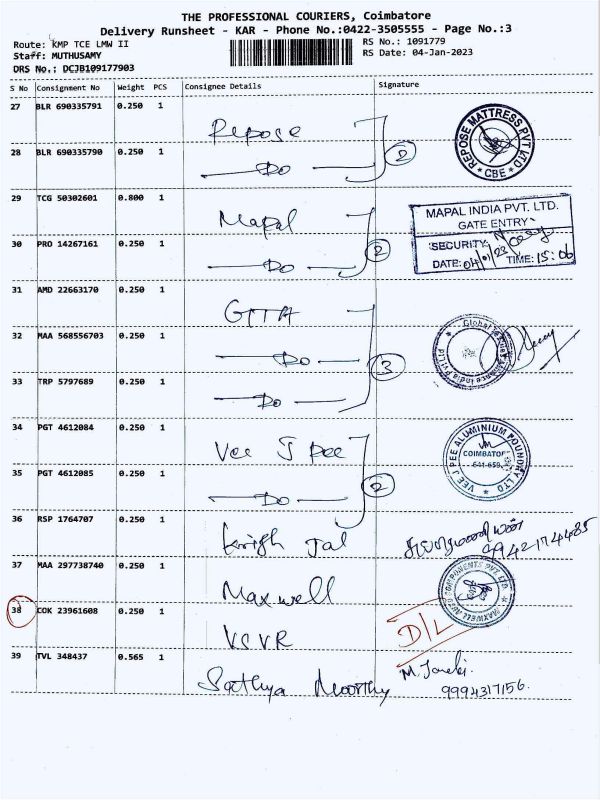 THE PROFESSIONAL COURIERS, Coimbatore
Delivery Runsheet - KAR - Phone No.:0422-3505555 - Page No.:3
Route: KMP TCE LMW II
RS No.: 1091779
Staff: MUTHUSAMY
RS Date: 04-Jan-2023
DRS No.: DCJB109177903
S No Consignment No Weight PCS Consignee Details Signature
27 BLR 690335791 0.250 1 Repose
REPOSE MATTRESS PVT LTD
* CBE *
28 BLR 690335790 0.250 1 Do 2
29 TCG 50302601 0.800 1 Mapal
MAPAL INDIA PVT. LTD.
GATE ENTRY
SECURITY:
DATE: 04/01/23 TIME: 15:06
30 PRO 14267161 0.250 1 Do 2
31 AMD 22663170 0.250 1 GTTA
32 MAA 568556703 0.250 1 Do 3
33 TRP 5797689 0.250 1 Do
34 PGT 4612084 0.250 1 Vee J Pee
VEE J PEE ALUMINIUM FOUNDRY LTD
COIMBATORE
641-659
35 PGT 4612085 0.250 1 Do 2
36 RSP 1764707 0.250 1
9942174485
37 MAA 297738740 0.250 1 Maxwell
MAXWELL AUTO COMPONENTS PVT LTD
38 COK 23961608 0.250 1 VSVR D/L
39 TVL 348437 0.565 1 Sathya Moorthy
9994317156.